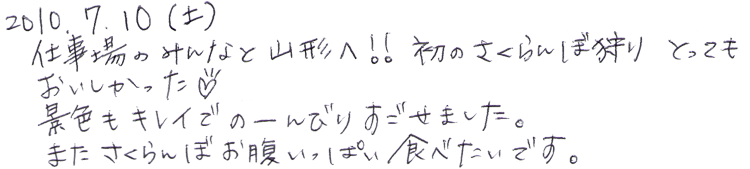 2010.7.10(土)
仕事場のみんなと山形へ!! 初のさくらんぼ狩り とっても
おいしかった♡
景色もキレイでのーんびりすごせました。
またさくらんぼお腹いっぱい食べたいです。